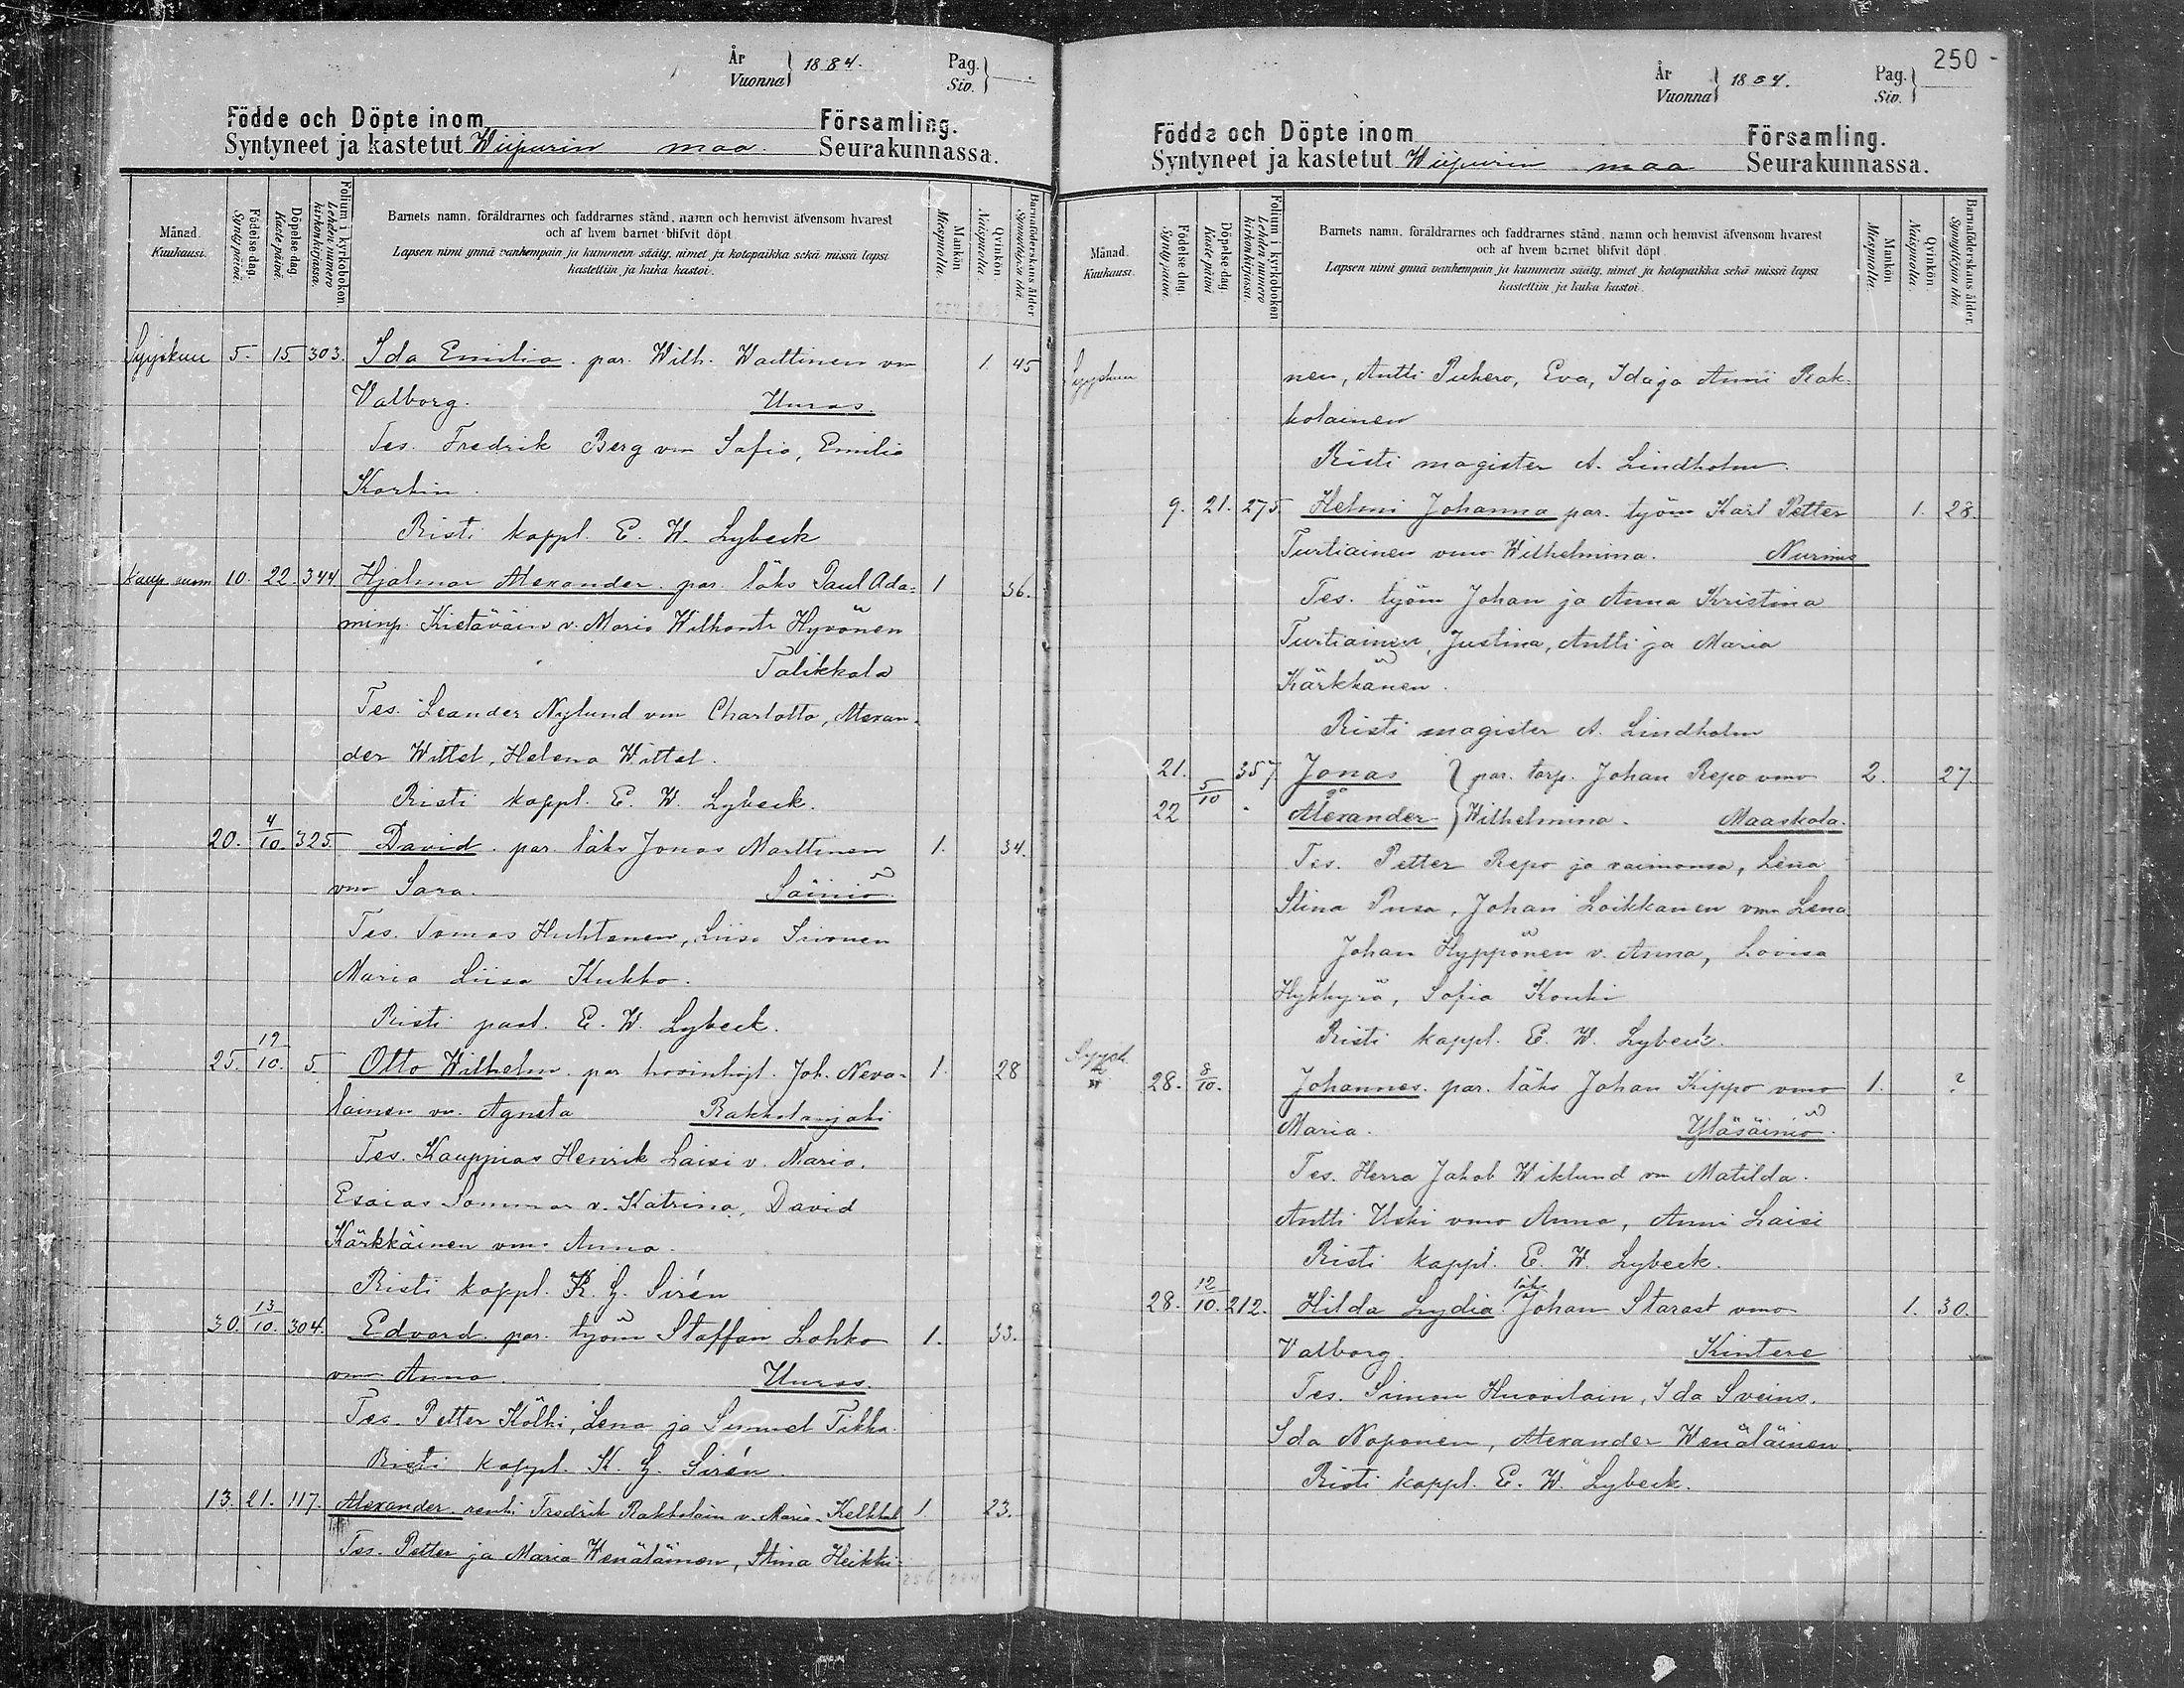 År
Vuonna } 1884. Pag.
Siv. }
Födde och Döpte inom Församling.
Syntyneet ja kastetut Wiipurin maa Seurakunnassa.
Månad.
Kuukausi.
Födelse dag.
Syntypäivä.
Döpelse dag.
Kastepäivä.
Folium i kyrkoboken
Lehden numero kirkonkirjassa.
Barnets namn, föräldrarnes och faddrarnes stånd, namn och hemvist äfvensom hvarest
och af hvem barnet blifvit döpt.
Lapsen nimi ynnä vanhempain ja kummein sääty, nimet ja kotopaikka sekä missä lapsi
kastettiin ja kuka kastoi.
Mankön
Miespuolia.
Qvinkön.
Naispuolia.
Barnaföderskans ålder
Synnyttäjän ikä.
Syyskuu 5. 15 303. Ida Emilia. par. Wilh. Waittinen vm 1. 45
Valborg. Uuras.
Tes. Fredrik Berg vm Sofia, Emilia
Korhin.
Risti kappl. E. W. Lybeck
10. 22. 344 Hjalmar Alexander. par. läks Paul Ada= 1 36.
minp. Kietäväin v. Maria Wilhont. Hyvönen
Talikkala
Tes. Leander Nylund vm Charlotta, Alexan-
der Wittet, Helena Wittet.
Risti kappl. E. W. Lybeck.
20. 4/10. 325. David. par. läks Jonas Marttinen 1. 34.
vm Sara. Säiniö
Tes. Tomas Huhtanen, Liisa Siionen
Maria Liisa Kukko.
Risti past. E. W. Lybeck.
25. 12/10. 5. Otto Wilhelm. par hovinhojt. Joh. Neva- 1. 28
lainen vm. Agneta Rakkolanjoki
Tes. Kauppias Henrik Laisi v. Maria.
Esaias Sommar v. Katrina, David
Kärkkäinen vm. Anna.
Risti kappl. K. G. Sirén
30. 13/10. 304. Edvard. par. työm Staffan Lohko 1. 33.
vm Anna. Uuras.
Tes. Petter Kölhi, Lena ja Summel Tikka.
Risti kappl. K. G. Sirén.
13. 21. 117. Alexander renki Fredrik Rakkolain v. Maria. Kelkkal 1. 23.
Tes. Petter ja Maria Wenäläinen, Stina Heikki-
250
År
Vuonna } 1884. Pag.
Siv. }
Födda och Döpte inom Församling.
Syntyneet ja kastetut Wiipurin maa Seurakunnassa.
Månad.
Kuukausi.
Födelse dag.
Syntypäivä.
Döpelse dag.
Kaste päivä
Folium i kyrkoboken
Lehden numero kirkonkirjassa.
Barnets namn, föräldrarnes och faddrarnes stånd, namn och hemvist äfvensom hvarest
och af hvem barnet blifvit döpt.
Lapsen nimi ynnä vanhempain ja kummein sääty, nimet ja kotopaikka sekä missä lapsi
kastettiin ja kuka kastoi.
Mankön
Miespuolia.
Qvinkön.
Naispuolia.
Barnaföderskans ålder.
Synnyttäjän ikä
Syyskuu nen, Antti Puhero, Eva, Ida ja Anni Rak-
kolainen
Risti magister A. Lindholm.
9. 21. 275. Helmi Johanna par. työm Karl Petter 1. 28.
Turtiainen vmo Wilhelmina. Nurmis
Tes. työm Johan ja Anna Kristina
Turtiainen, Justina, Antti ja Maria
Kärkkänen.
Risti magister A. Lindholm
21. 5/10 357 Jonas } par. torp. Johan Repo vmo 2. 27.
22 Alexander } Wilhelmina. Maaskola.
Tes. Petter Repo ja vaimonsa, Lena
Stina Pusa, Johan Loikkanen vm Lena
Johan Hyppönen v. Anna, Lovisa
Hykkyrä, Sofia Kouhi
Risti kappl. E. W. Lybeck.
Syysk. 28. 8/10. Johannes. par. läks Johan Kippo vmo 1. ?
Maria. Yläsäiniö.
Tes. Herra Jakob Wiklund vm Matilda.
Antti Uski vmo Anna, Anni Laisi
Risti kappl. E. W. Lybeck.
28. 12/10. 212. Hilda Lydia läks Johan Starast vmo 1. 30.
Valborg. Kintere
Tes. Simon Huovilain, Ida Sveins,
Ida Noponen, Alexander Wenäläinen.
Risti kappl. E. W. Lybeck.